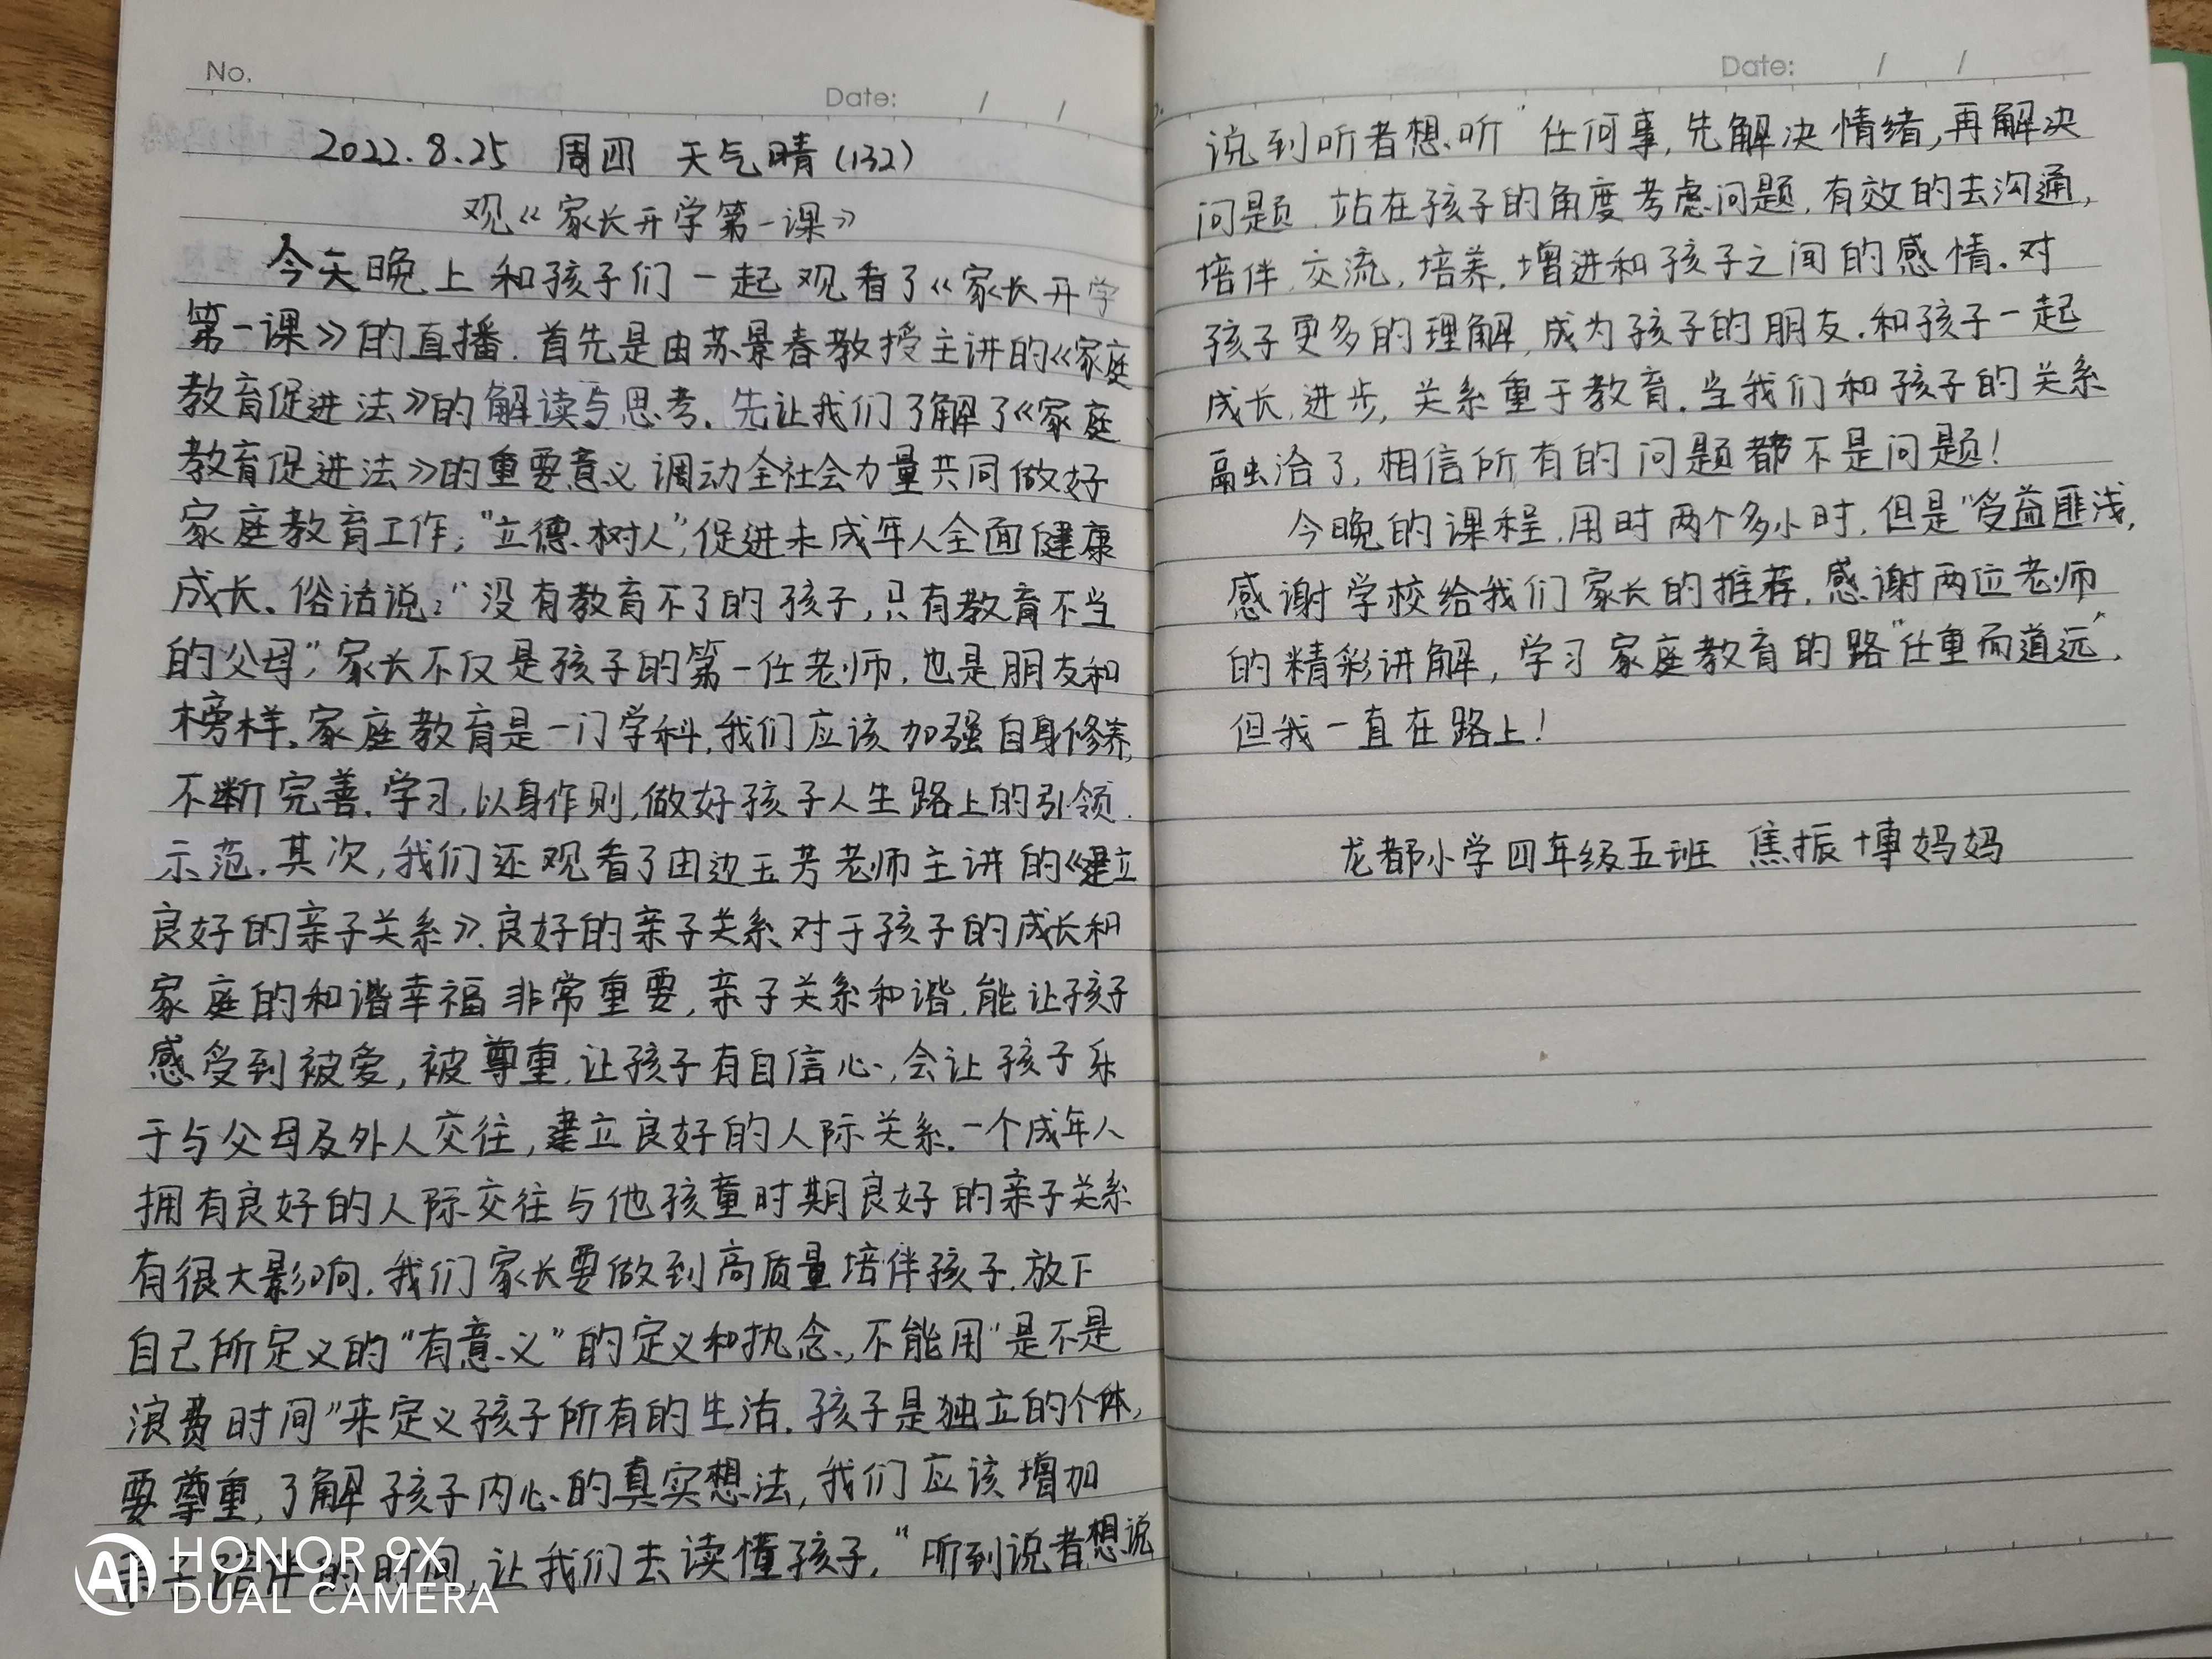 No.
Date: / /
2022.8.25 周四 天气晴(132)
观《家长开学第一课》
今天晚上和孩子们一起观看了《家长开学
第一课》的直播.首先是由苏景春教授主讲的《家庭
教育促进法》的解读与思考.先让我们了解了《家庭
教育促进法》的重要意义 调动全社会力量共同做好
家庭教育工作,"立德树人",促进未成年人全面健康
成长。俗话说:"没有教育不了的孩子,只有教育不当
的父母",家长不仅是孩子的第一任老师,也是朋友和
榜样.家庭教育是一门学科,我们应该加强自身修养,
不断完善.学习,以身作则,做好孩子人生路上的引领.
示范.其次,我们还观看了由边玉芳老师主讲的《建立
良好的亲子关系》.良好的亲子关系对于孩子的成长和
家庭的和谐幸福非常重要,亲子关系和谐,能让孩子
感受到被爱,被尊重,让孩子有自信心,会让孩子乐
于与父母及外人交往,建立良好的人际关系.一个成年人
拥有良好的人际交往与他孩童时期良好的亲子关系
有很大影响.我们家长要做到高质量培伴孩子.放下
自己所定义的"有意义"的定义和执念,不能用"是不是
浪费时间"来定义孩子所有的生活.孩子是独立的个体,
要尊重,了解孩子内心的真实想法,我们应该增加
亲子陪伴的时间,让我们去读懂孩子."听到说者想说
Date: / /
说到听者想听"任何事,先解决情绪,再解决
问题.站在孩子的角度考虑问题,有效的去沟通,
培伴,交流,培养,增进和孩子之间的感情.对
孩子更多的理解,成为孩子的朋友.和孩子一起
成长,进步,关系重于教育.当我们和孩子的关系
融洽了,相信所有的问题都不是问题!
今晚的课程,用时两个多小时,但是"受益匪浅,
感谢学校给我们家长的推荐,感谢两位老师
的精彩讲解,学习家庭教育的路"任重而道远",
但我一直在路上!
龙都小学四年级五班 焦振博妈妈
HONOR 9X
AI DUAL CAMERA